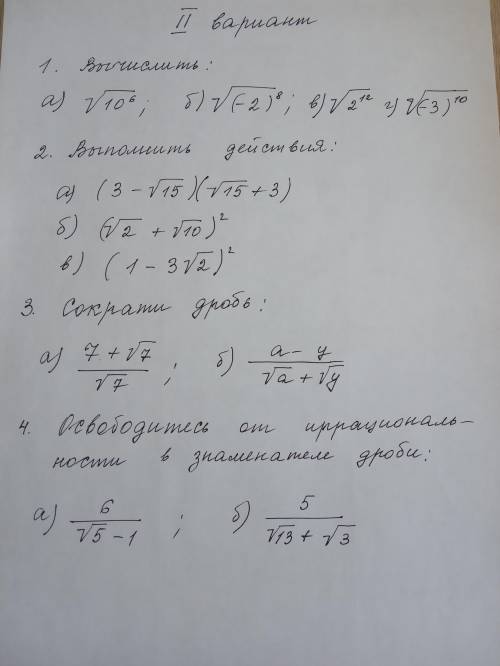 II вариант
1. Вычислить:
а) √10⁶; б) √(-2)⁸; в) √2¹² г) √(-3)¹⁰
2. Выполнить действия:
а) (3 - √15)(√15 + 3)
б) (√2 + √10)²
в) (1 - 3√2)²
3. Сократи дробь:
а) (7 + √7)/√7; б) (a - y)/(√a + √y)
4. Освободитесь от иррациональ-
ности в знаменателе дроби:
а) 6/(√5 - 1); б) 5/(√13 + √3)